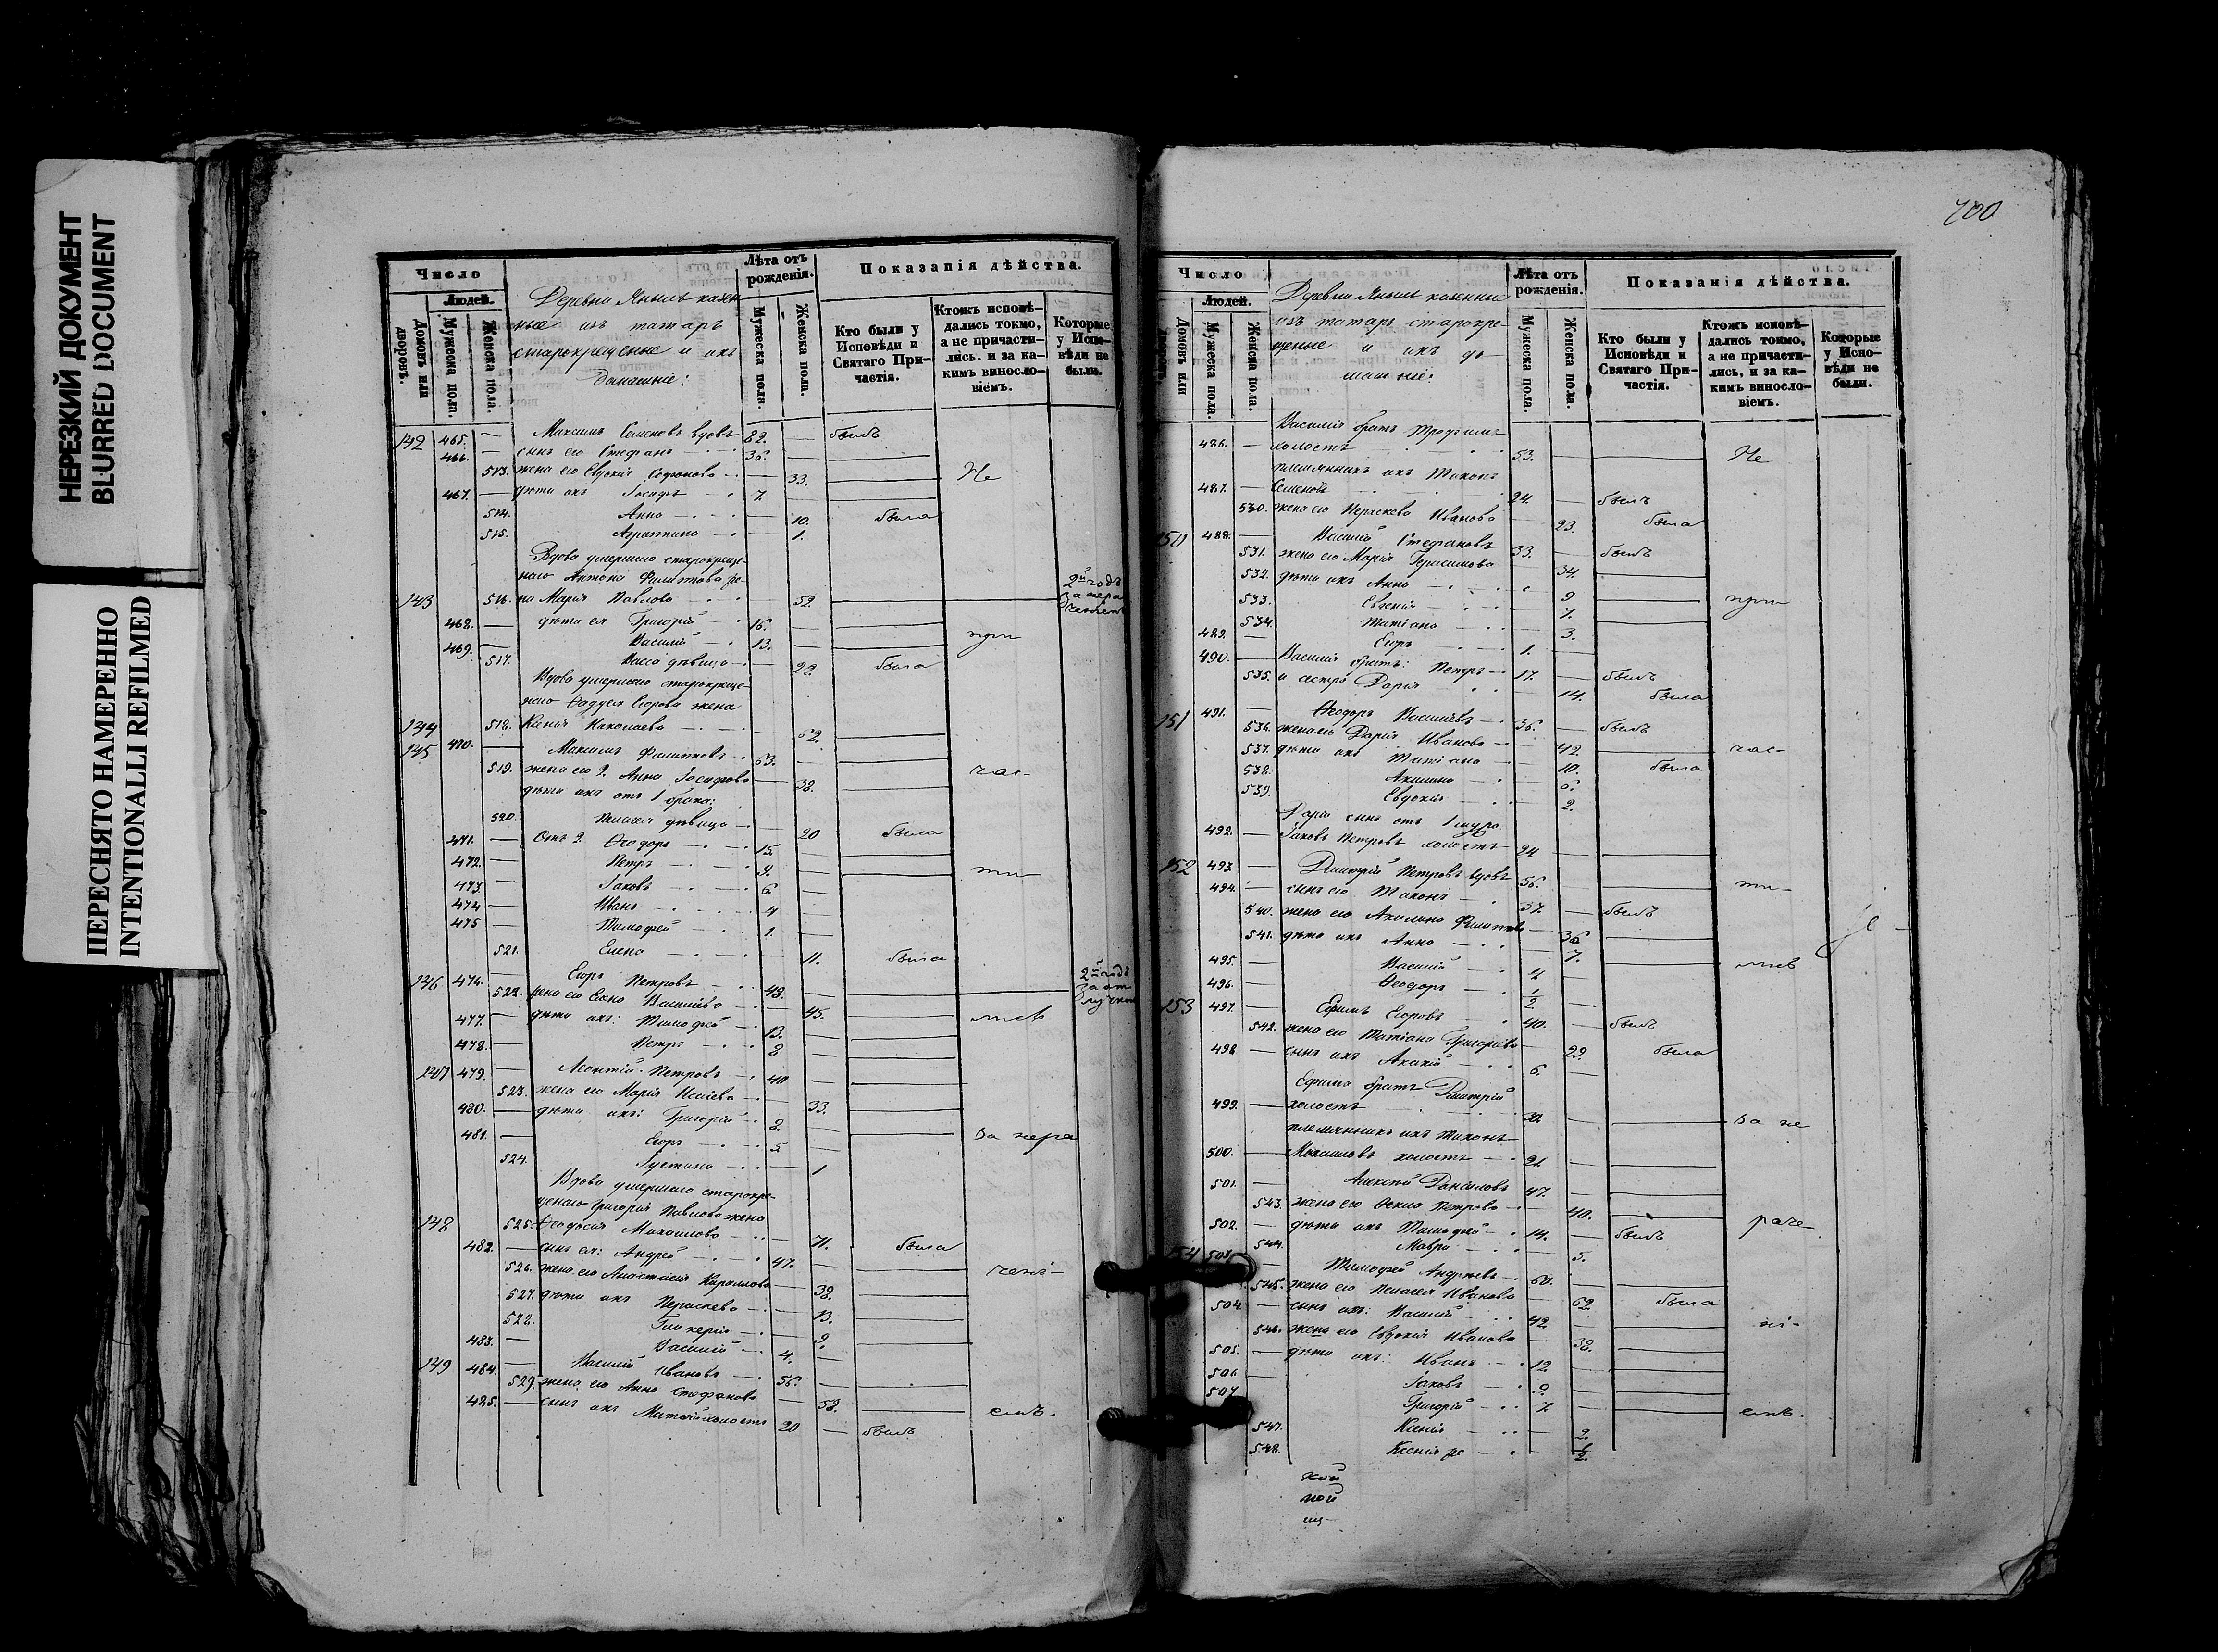 НЕРЕЗКИЙ ДОКУМЕНТ
BLURRED DOCUMENT
ПЕРЕСНЯТО НАМЕРЕННО
INTENTIONALLI REFILMED
Число
Людей.
Домовъ или дворовъ.
Мужеска пола.
Женска пола.
Деревни Янылъ казен
ные изъ татаръ
старокрещеные и ихъ
домашніе:
Лѣта отъ рожденія.
Мужеска пола.
Женска пола.
Показанія дѣйства.
Кто были у Исповѣди и Святаго Причастія.
Ктожъ исповѣдались токмо, а не причастились. и за какимъ винословіемъ.
Которые у Исповѣди не были.
142 465. — Максимъ Семеновъ вдовъ 82. — былъ
466. — сынъ его Стефанъ 36. —
513. жена его Евдокія — 33. Не
467. — дѣти ихъ Іосифъ 7.
514. Анна — 10. была
515. Агрипина — 1.
Вдова умершаго старокреще-
наго Антонія Филиппова же-
143 516. на Марія Павлова — 52. 2й годъ
468. — дѣти ея Григорій 16. —
469. — Василій 13. — при
517. Васса дѣвица — 22. была
Вдова умершаго старокреще-
наго Фаддея Егорова жена
144 518. Ксенія Николаева — 62.
145 470. — Максимъ Филипповъ 63. —
519. жена его 2. Анна Іосифова — 38. час-
дѣти ихъ отъ 1 брака:
520. Пелагея дѣвица — 20 была
471. — Отъ 2. Ѳеодоръ 15. —
472. — Петръ 9. — ти-
473. — Іаковъ 6 —
474 — Иванъ 4 —
475 — Тимофей 1. —
521. Елена — 11. была
146 476. — Егоръ Петровъ 43. — 2й годъ
522. жена его Васильева — 45. лись
477. — дѣти ихъ: Тимофей 13. —
478. — Петръ 8 —
147 479. — Леонтій Петровъ 40 —
523. жена его Марія Исаева — 33.
480. — дѣти ихъ: Григорій 8. —
481. — Егоръ 5 — за нера
524. Густина — 1
Вдова умершаго старокре-
щенаго Григорія Павлова жена
148 525. Ѳеодосія Михаилова — 71. была
482. — сынъ ея: Андрей 47. —
526. жена его Анастасія Кириллова — 38. чені-
527. дѣти ихъ Параскева — 13.
528. Гликерія — 9.
483. — Василій 4. —
149 484. — Василій Ивановъ 56. —
529. жена его Анна Стефанова — 58. емъ.
485. — сынъ ихъ Матвей холостъ 20 — былъ
700
Число
Людей.
Домовъ или дворовъ.
Мужеска пола.
Женска пола.
Деревни Янылъ казенные
изъ татаръ старокре-
щеные и ихъ до-
машніе:
Лѣта отъ рожденія.
Мужеска пола.
Женска пола.
Показанія дѣйства.
Кто были у Исповѣди и Святаго Причастія.
Ктожъ исповѣдались токмо, а не причастились, и за какимъ винословіемъ.
Которые у Исповѣди не были.
Василія братъ Трофимъ
486. — холостъ 53. — Не
племянникъ ихъ Тихонъ
487. — Семеновъ 24. — былъ
530. жена его Параскева Иванова — 23. была
150 488. — Василій Стефановъ 33. — былъ
531. жена его Марія Герасимова 34.
532. дѣти ихъ Анна — 9 при
533. Евгенія — 7.
534. Татіана — 3.
489. — Егоръ 1. —
490. — Василія братъ: Петръ 17. — былъ
535. и сестра Дарія 14. была
151 491. — Ѳеодоръ Васильевъ 36. — былъ
536. жена его Дарія Иванова — 42. час-
537. дѣти ихъ Татіана — 10. была
538. Акилина — 6.
539. Евдокія — 2.
Дарія сынъ отъ 1 мужа
492. — Іаковъ Петровъ холостъ 24 —
152 493. — Димитрій Петровъ вдовъ 56. — ти-
494. — сынъ его Тихонъ 37. — былъ
540. жена его Акилина Филиппова — 36.
541. дѣти ихъ Анна — 7. лись
495. — Василій 4
496. — Ѳеодоръ 1/2
153 497. — Ефимъ Егоровъ 40. — былъ
542. жена его Татіана Григорьева — 29. была
498 — сынъ ихъ Акакій 6. —
Ефима братъ Димитрій
499. — холостъ 30 — за не
племянникъ ихъ Тихонъ
500. — Михаиловъ холостъ 21. —
501. — Алексѣй Даниловъ 47. —
543. жена его Ѳекла Петрова — 40. раче-
502. — дѣти ихъ Тимофей 14. — былъ
544. Мавра — 5.
154 503 — Тимофей Андреевъ 60. —
545. жена его Пелагея Иванова — 62. была
504. — сынъ ихъ: Василій 42 — ні-
546. жена его Евдокія Иванова — 38.
505. — дѣти ихъ: Иванъ 12 —
506 — Іаковъ 9 —
507 Григорій 7. — емъ.
547. Ксенія — 2.
548. Ксенія же — 1/2